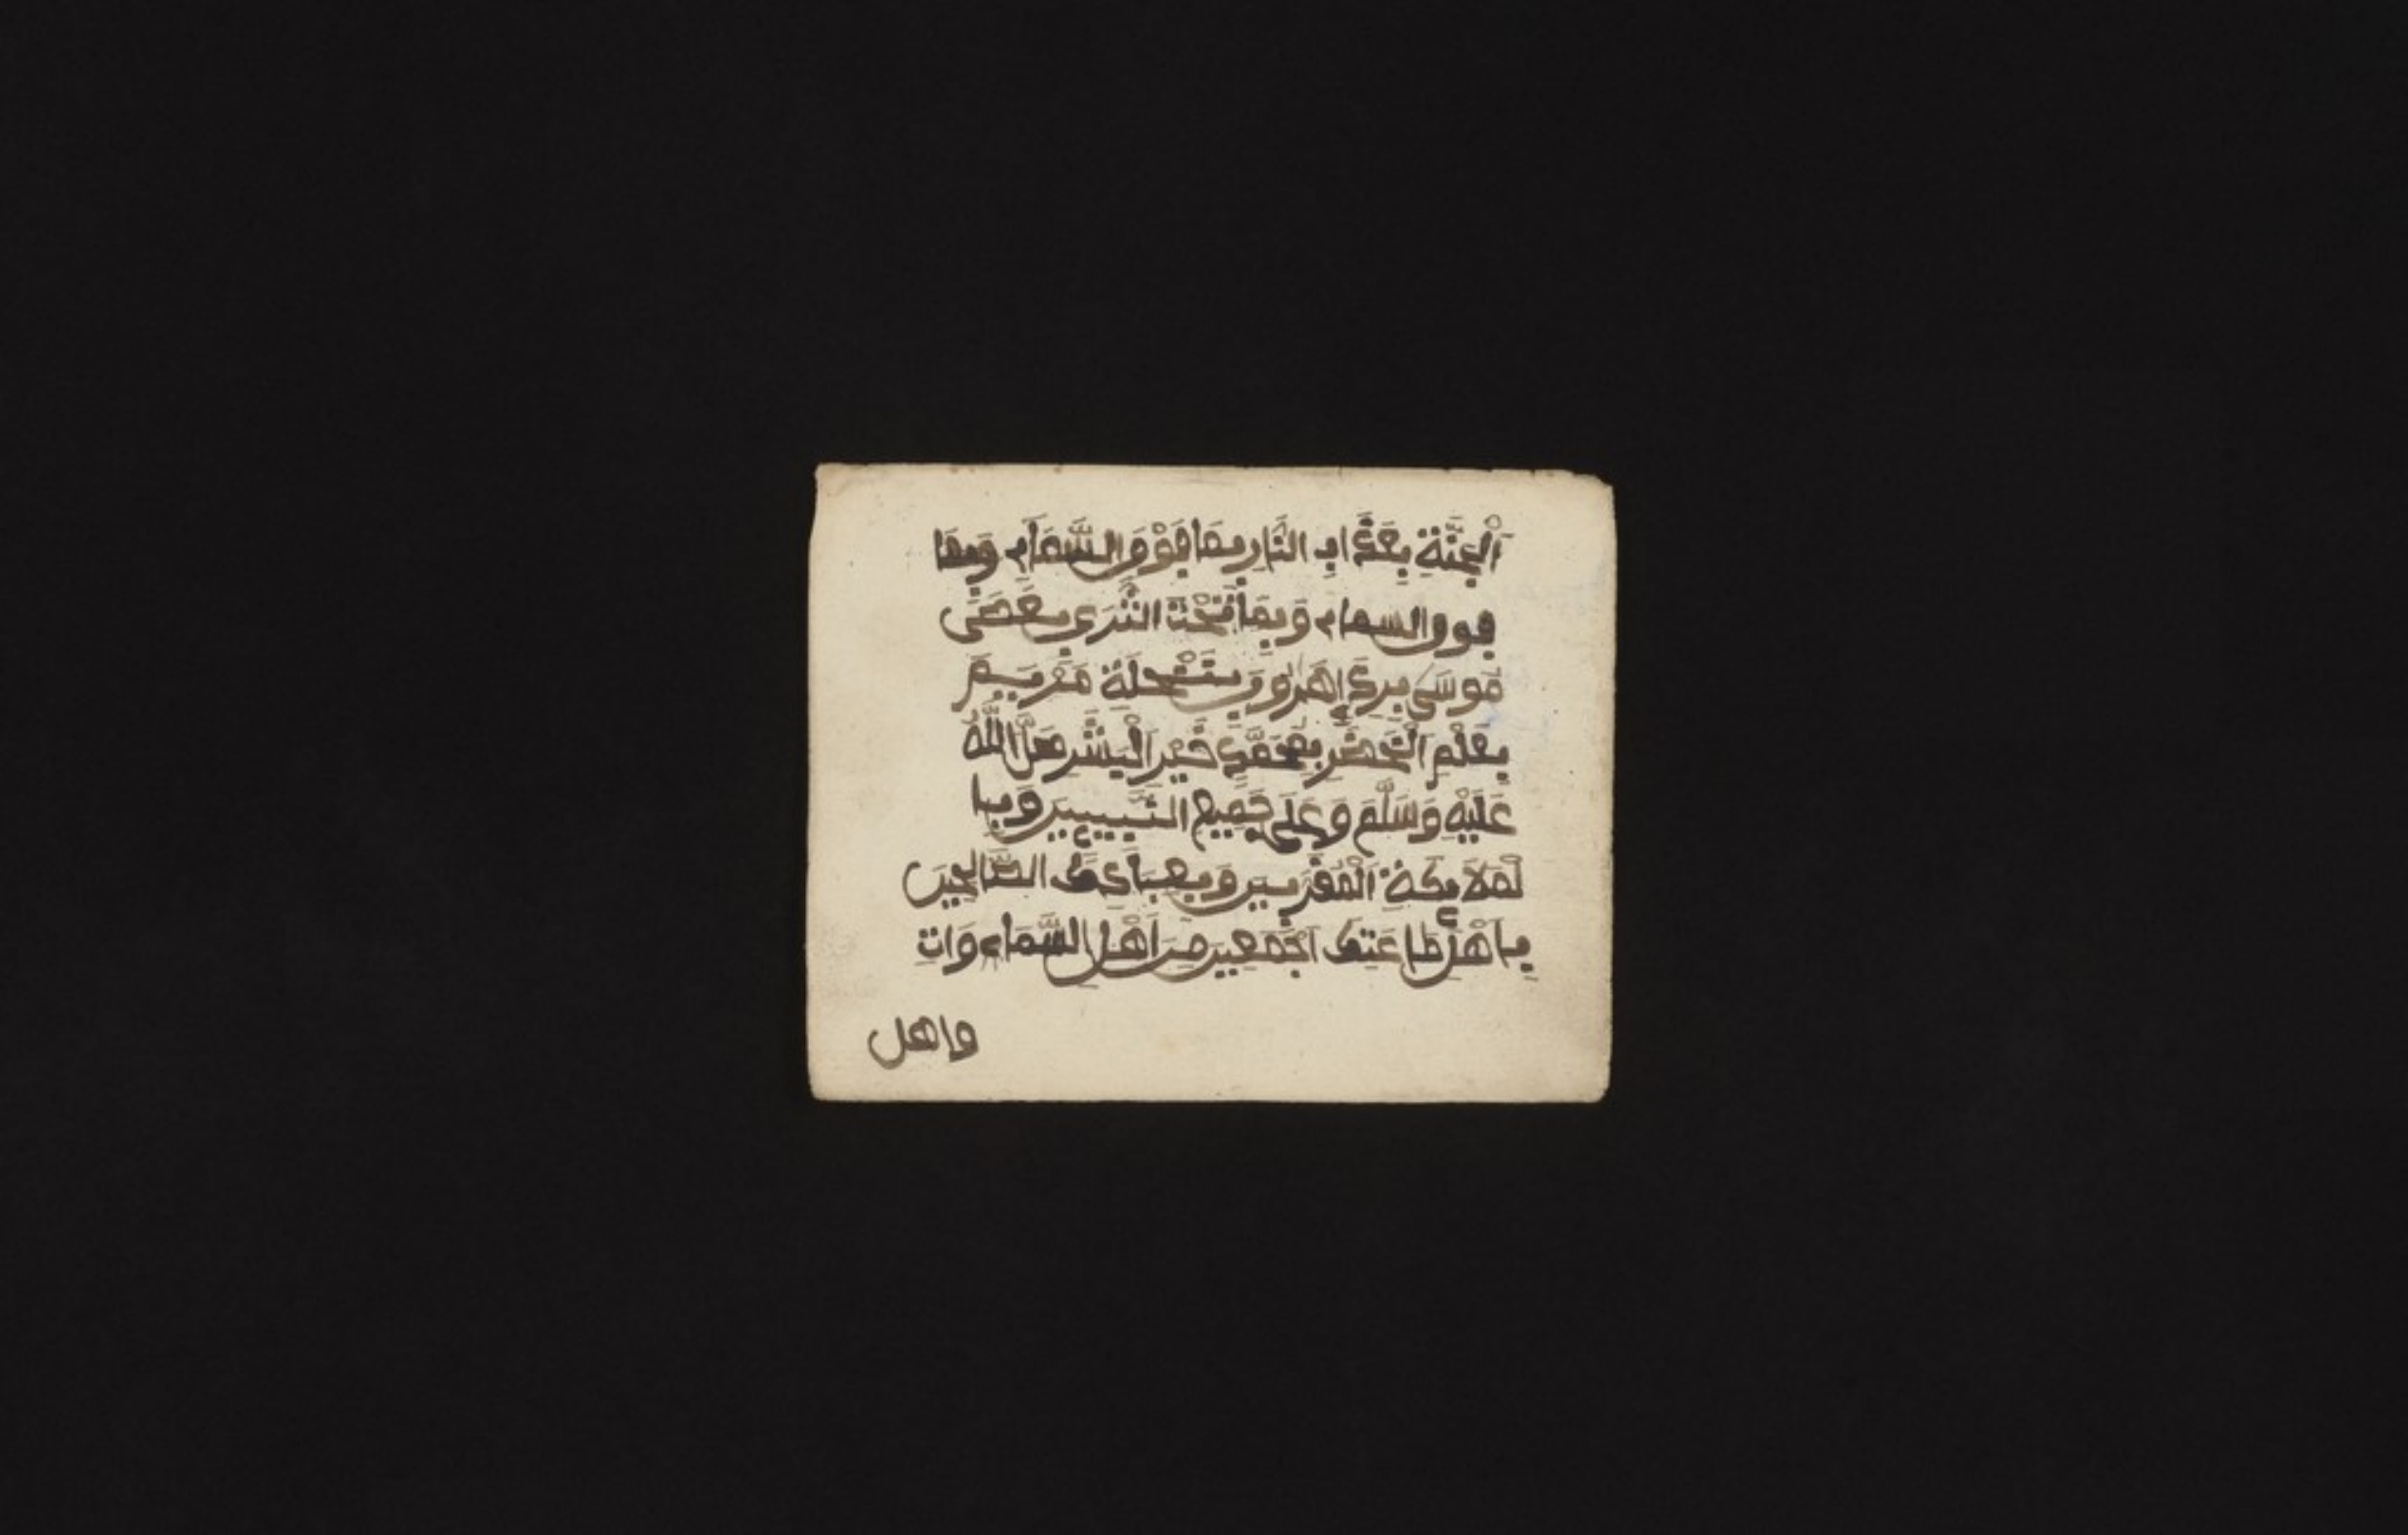 اَلْجَنَّةِ بِعَذَابِ النَّارِ بِمَا فَوْقَ السَّمَاءِ وَبِمَا
فوق السماء وَبِمَا تَحْتَ الثَّرَى بِعَصَى
مُوسَى بِرِدَاءِ هَرُونَ وَبِنَخْلَةِ مَرْيَمَ
بِعِلْمِ الْخَضِرِ بِمُحَمَّدٍ خَيْرِ الْبَشَرِ صَلَّ اللَّهُ
عَلَيْهِ وَسَلَّمَ وَعَلَى جَمِيعِ النَّبِيِّينَ وَبِا
لْمَلَايِكَةِ الْمُقَرَّبِينَ وَبِعِبَادِكَ الصَّالِحِينَ
بِاَهْلِ طَاعَتِكَ اَجْمَعِينَ مِنَ اَهْلِ السَّمَاءوَاتِ
واهل